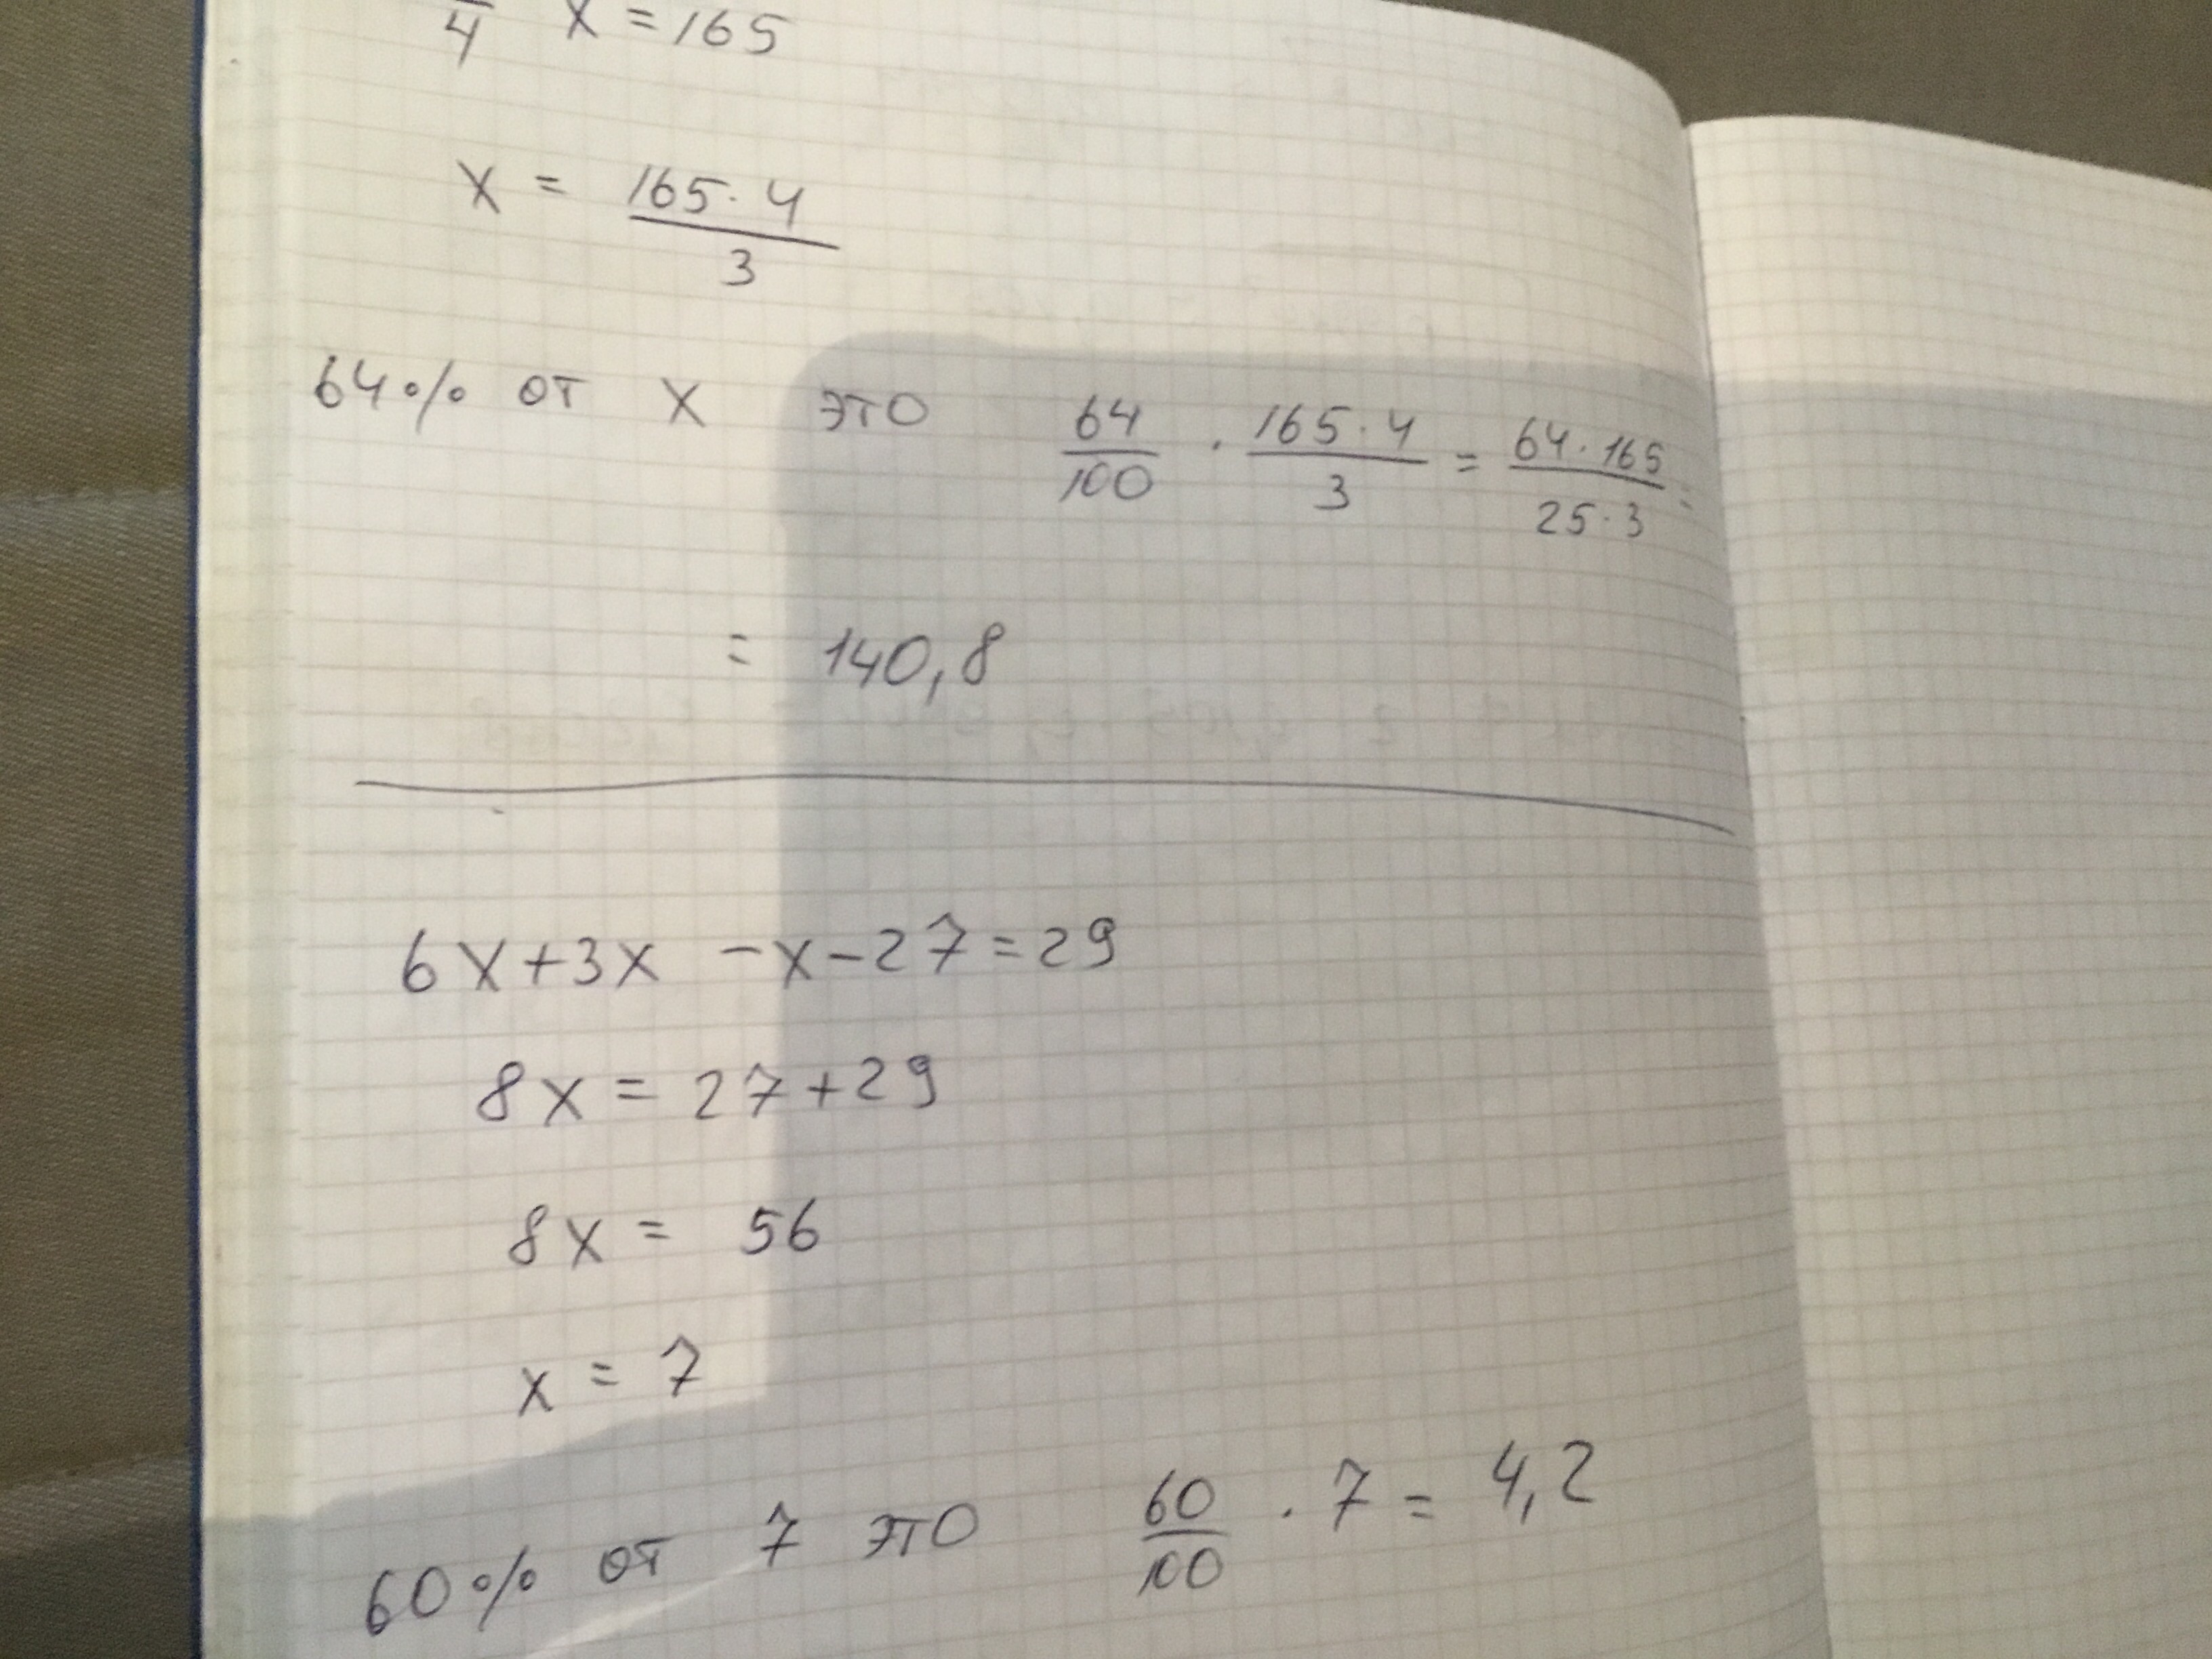 4 x = 165
x = 165·4 / 3
64% от x это 64/100 · 165·4/3 = 64·165/25·3 =
= 140,8
6x+3x -x-27=29
8x = 27+29
8x = 56
x = 7
60% от 7 это 60/100 · 7 = 4,2